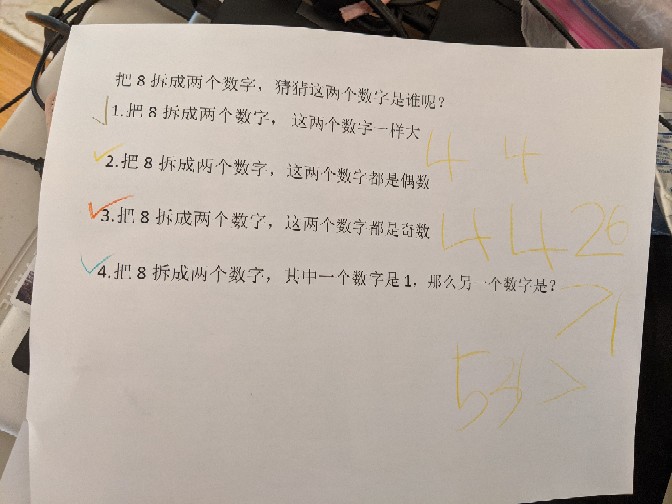 把 8 拆成两个数字，猜猜这两个数字是谁呢？
1.把 8 拆成两个数字，这两个数字一样大
4 4
2.把 8 拆成两个数字，这两个数字都是偶数
4 4 26
3.把 8 拆成两个数字，这两个数字都是奇数
71
4.把 8 拆成两个数字，其中一个数字是 1，那么另一个数字是？
53